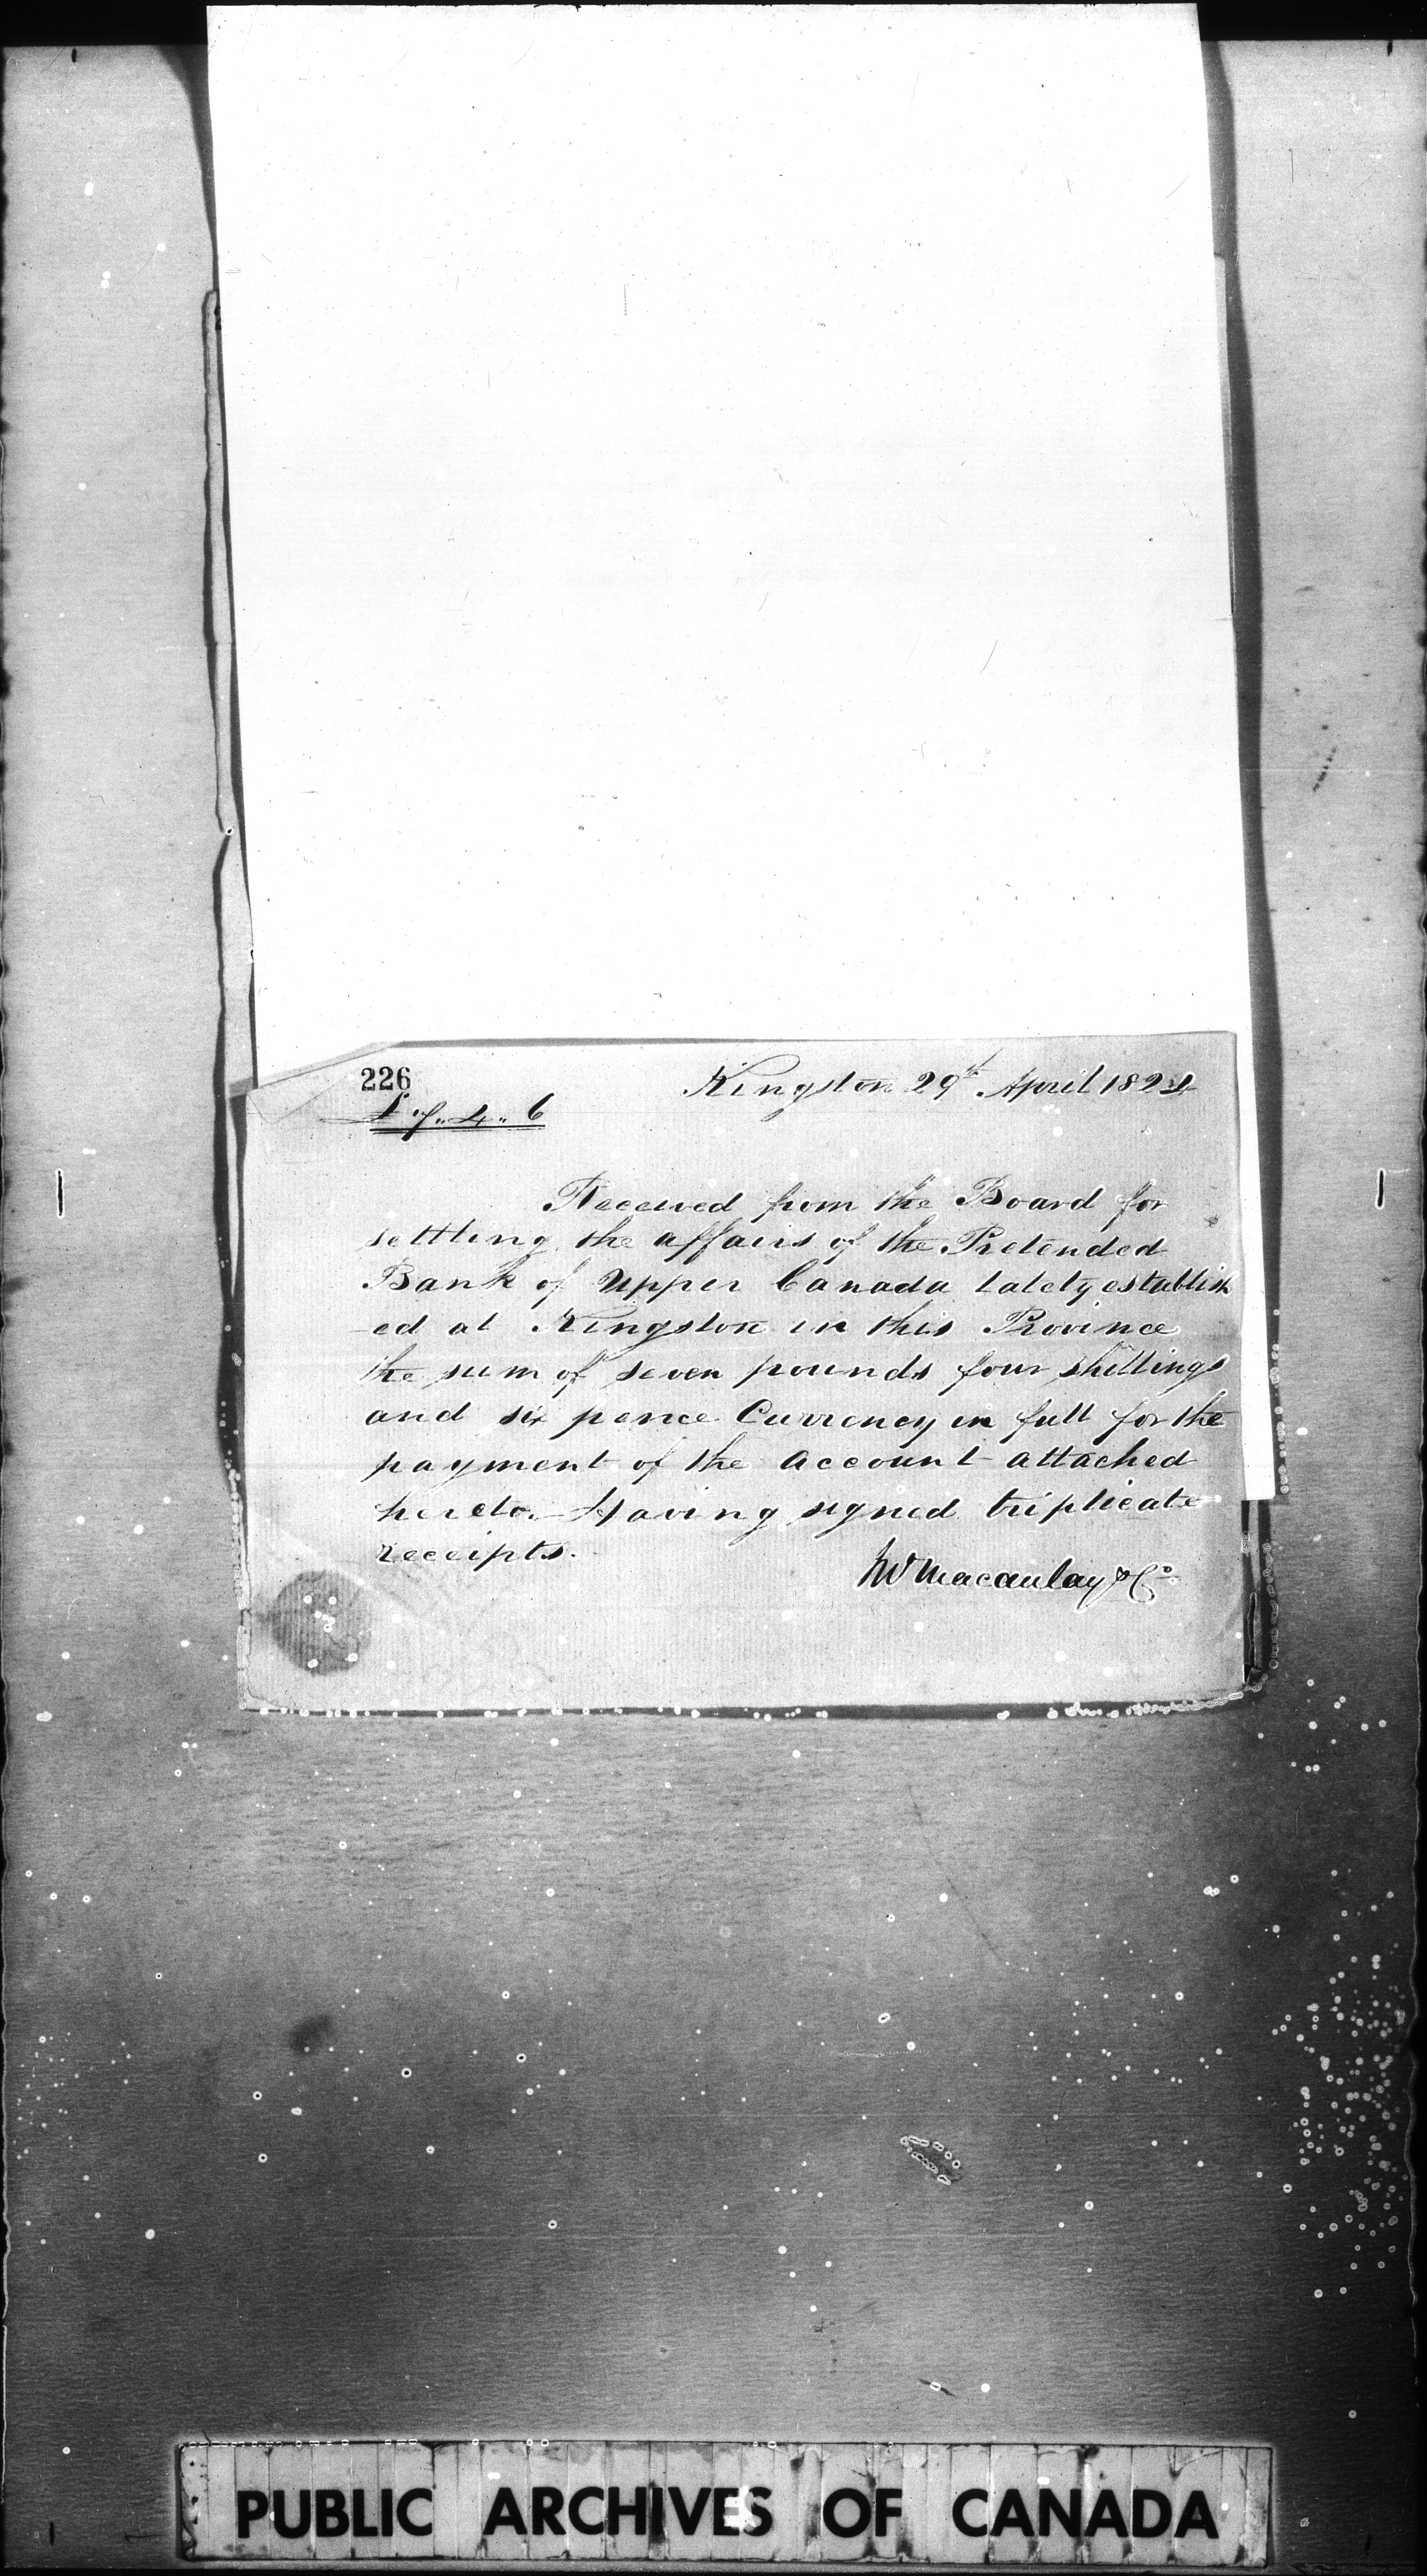 226
Kingston 29th April 1824
£7„4„6
Received from the Board for
settling the affairs of the Pretended
Bank of Upper Canada lately establish
-ed at Kingston in this Province
the sum of seven pounds four shillings
and six pence Currency in full for the
payment of the account attached
hereto.- Having signed triplicate
receipts.
Macaulay & Co
PUBLIC ARCHIVES OF CANADA